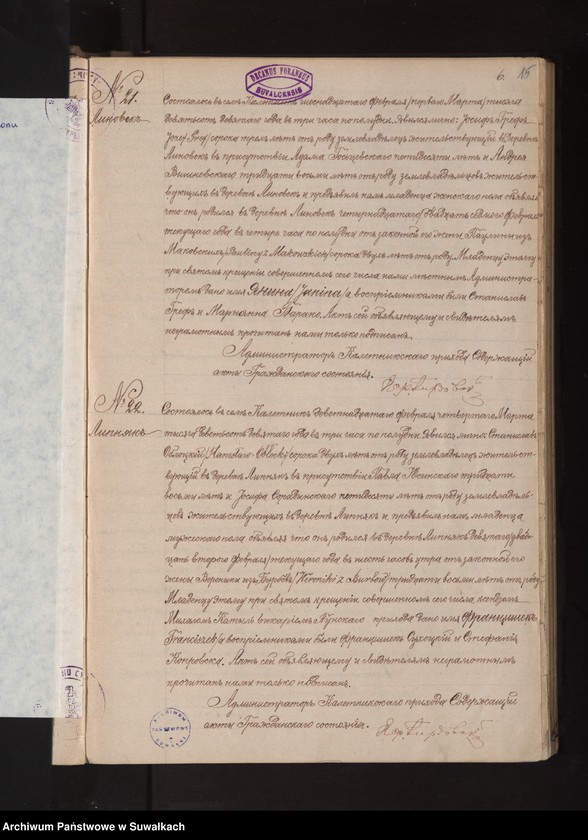 6. 15
DECANUS FORANEUS
SUVALCENSIS
№ 21.
Линовекъ
Состоялось въ селѣ Калетникъ шестнадцатаго февраля /перваго Марта/ тысяча
девятьсотъ девятаго года въ три часа по полудни. Явился лично: Іосифъ Грефъ
/Józef Gref/ сорока трехъ лѣтъ отъ роду земледѣлецъ жительствующій въ деревнѣ
Линовекъ въ присутствіи Адама пятидесяти лѣтъ и Андрея
Вишневскаго тридцати восьми лѣтъ отъ роду земледѣльцевъ жительст-
вующихъ въ деревнѣ Линовекъ и предъявилъ намъ младенца женскаго пола объявляя
что онъ родился въ деревнѣ Линовекъ четырнадцатаго /двадцать седьмого/ февраля
текущаго года въ четыре часа по полудни отъ законной его жены Паулины изъ
Маковскихъ /Pauliny z Makowskich/ сорока двухъ лѣтъ отъ роду. Младенцу этому
при святомъ крещеніи совершенномъ сего числа нами мѣстнымъ Администра-
торомъ дано имя Янина /Janina/ а воспріемниками были Станиславъ
Грефъ и Марьянна Актъ сей объявляющему и свидѣтелямъ
неграмотнымъ прочитанъ нами только подписанъ.
Администраторъ Калетникскаго прихода Содержащій
акты Гражданскаго состоянія.
№ 22.
Липнякъ
Состоялось въ селѣ Калетникъ девятнадцатаго февраля /четвертаго Марта/
тысяча девятьсотъ девятаго года въ три часа по полудни. Явился лично: Станиславъ
Облоцкій /Stanisław Obłocki/ сорока двухъ лѣтъ отъ роду земледѣлецъ жительст-
вующій въ деревнѣ Липнякъ въ присутствіи Павла тридцати
восьми лѣтъ и Іосифа пятидесяти лѣтъ отъ роду земледѣль-
цевъ жительствующихъ въ деревнѣ Липнякъ и предъявилъ намъ младенца
мужескаго пола объявляя что онъ родился въ деревнѣ Липнякъ девятаго /двад-
цать второго февраля/ текущаго года въ шесть часовъ утра отъ законной его
жены Вероники изъ /Weroniki z / тридцати восьми лѣтъ отъ роду
Младенцу этому при святомъ крещеніи совершенномъ сего числа ксендзомъ
викаріемъ прихода дано имя Францишекъ
/Franciszek/ а воспріемниками были Францишекъ и Стефанія
Актъ сей объявляющему и свидѣтелямъ неграмотнымъ
прочитанъ нами только подписанъ.
Администраторъ Калетникскаго прихода Содержащій
акты Гражданскаго состоянія.
ARCHIWUM
PAŃSTWOWE
SUWAŁKI
Archiwum Państwowe w Suwałkach